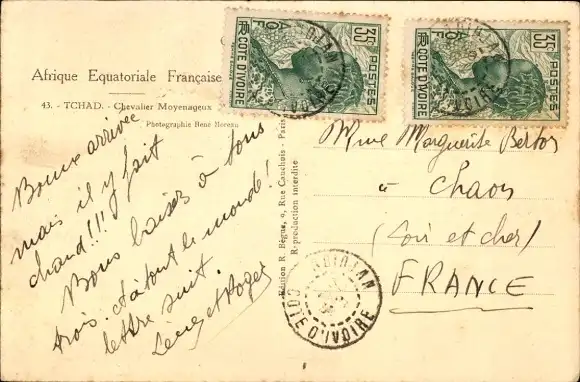 Afrique Equatoriale Française
43. - TCHAD. - Chevalier Moyenageux
Photographie René Moreau
Bonne arrivée
mais il y fait
chaud!!!
Bons baisers à tous
trois. et à tout le monde!
lettre suit.
et Roger
Edition R. Bègue, 9, Rue Cauchois - Paris
Reproduction interdite
35
POSTES
AOF
RF COTE D'IVOIRE
35
POSTES
AOF
RF COTE D'IVOIRE
ABIDJAN
COTE D'IVOIRE
Mme Marguerite
à Chaon
(Loir et Cher)
FRANCE